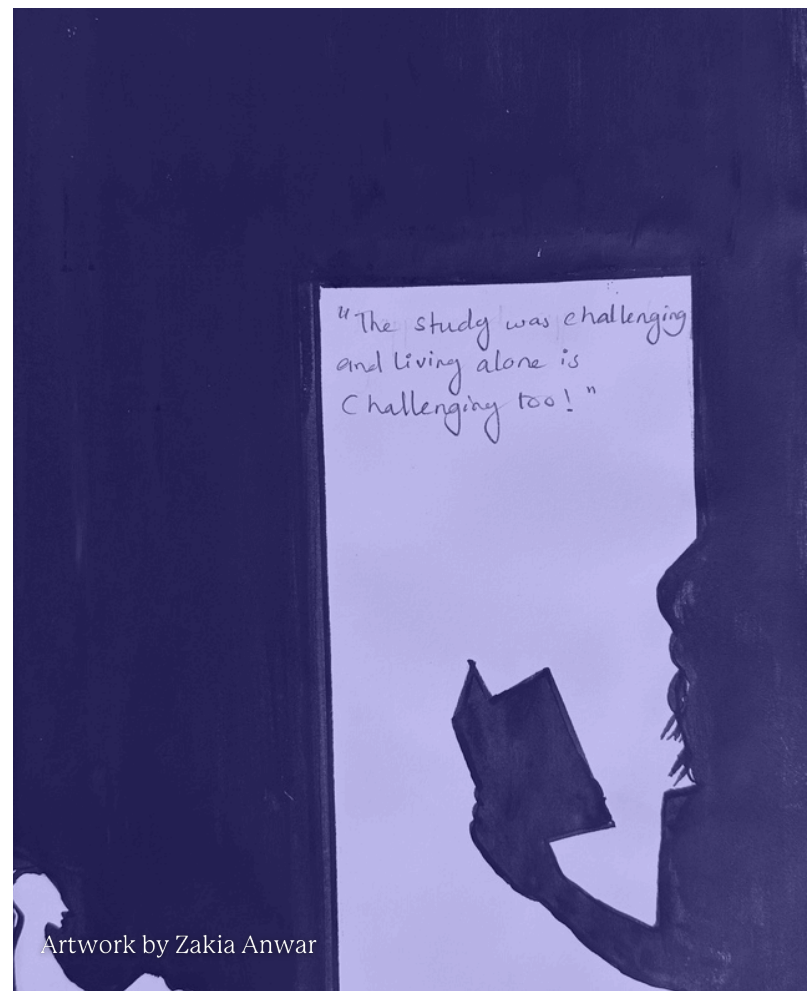 "The study was challenging
and living alone is
Challenging too! "
Artwork by Zakia Anwar